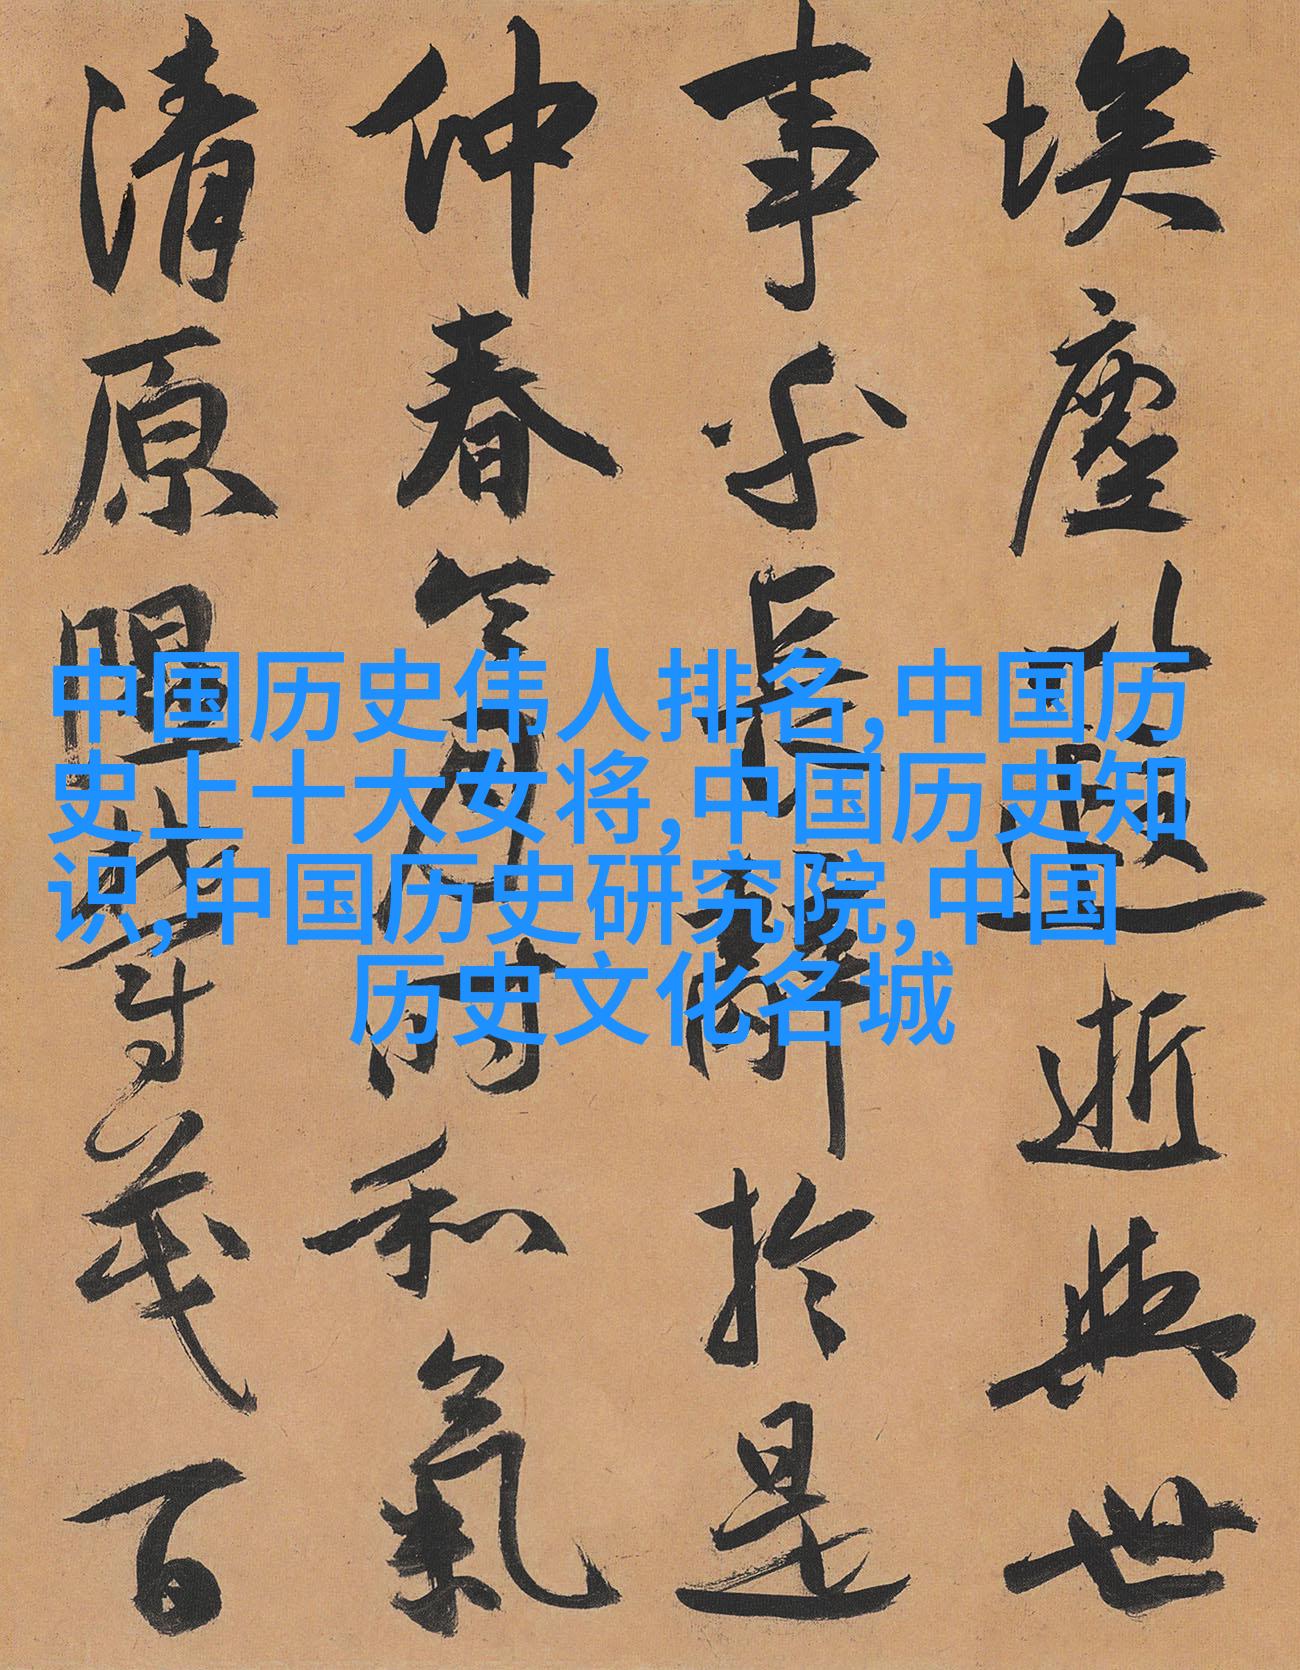 埃塵以遐逝與世
事乎長辭於是
仲春令月時和氣
清原隰鬱茂百
中国历史伟人排名,中国历
史上十大女将,中国历史知
识,中国历史研究院,中国
历史文化名城